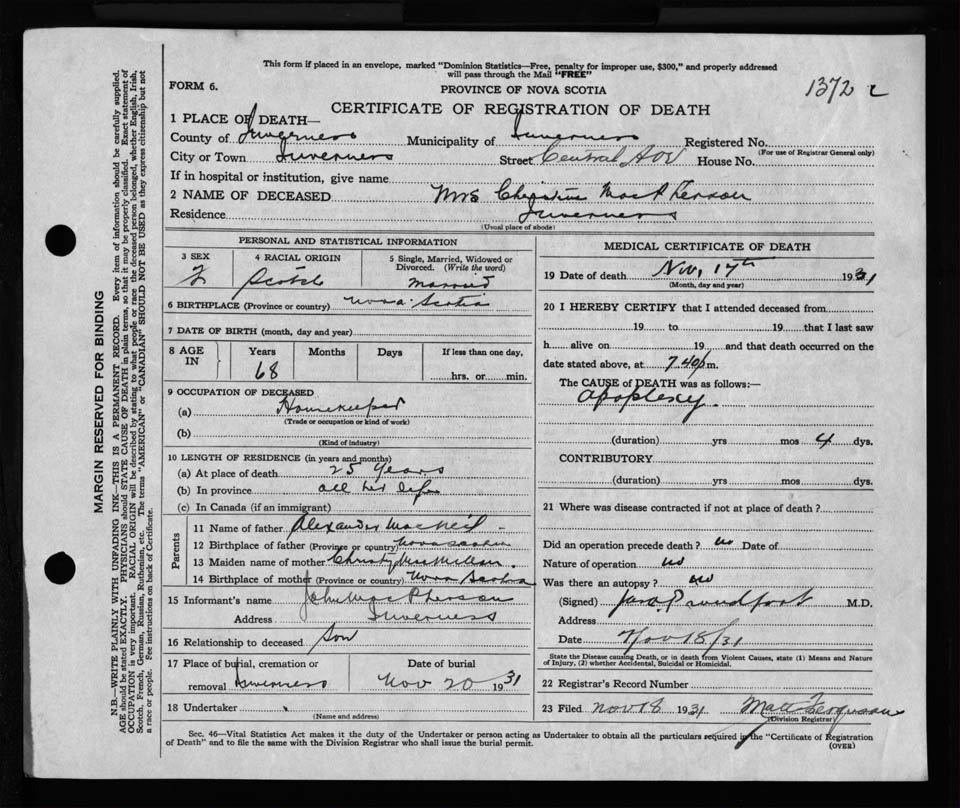 This form if placed in an envelope, marked "Dominion Statistics—Free, penalty for improper use, $300," and properly addressed
will pass through the Mail "FREE"
FORM 6.
PROVINCE OF NOVA SCOTIA
1372
CERTIFICATE OF REGISTRATION OF DEATH
1 PLACE OF DEATH—
County of Inverness Municipality of Inverness Registered No.
(For use of Registrar General only)
City or Town Inverness Street Central Ave House No.
If in hospital or institution, give name
2 NAME OF DECEASED Mrs Christine MacPherson
Residence Inverness
(Usual place of abode)
PERSONAL AND STATISTICAL INFORMATION
3 SEX 4 RACIAL ORIGIN 5 Single, Married, Widowed or
Divorced. (Write the word)
F Scotch Married
6 BIRTHPLACE (Province or country) Nova Scotia
7 DATE OF BIRTH (month, day and year)
8 AGE IN Years Months Days If less than one day,
68 hrs. or min.
9 OCCUPATION OF DECEASED
(a) Housekeeper
(Trade or occupation or kind of work)
(b)
(Kind of industry)
10 LENGTH OF RESIDENCE (in years and months)
(a) At place of death 25 years
(b) In province all her life
(c) In Canada (if an immigrant)
Parents
11 Name of father Alexander MacNeil
12 Birthplace of father (Province or country) Nova Scotia
13 Maiden name of mother Christy MacMillan
14 Birthplace of mother (Province or country) Nova Scotia
15 Informant's name John MacPherson
Address Inverness
16 Relationship to deceased Son
17 Place of burial, cremation or Date of burial
removal Inverness Nov 20 1931
18 Undertaker
(Name and address)
MEDICAL CERTIFICATE OF DEATH
19 Date of death Nov, 17th 1931
(Month, day and year)
20 I HEREBY CERTIFY that I attended deceased from
19 to 19 that I last saw
h alive on 19 and that death occurred on the
date stated above, at 7.40 p.m.
The CAUSE of DEATH was as follows:—
Apoplexy.
(duration) yrs mos 4 dys.
CONTRIBUTORY
(duration) yrs mos dys.
21 Where was disease contracted if not at place of death?
Did an operation precede death? no Date of
Nature of operation no
Was there an autopsy? no
(Signed) Jas. Proudfoot M.D.
Address
Date Nov 18/31
State the Disease causing Death, or in death from Violent Causes, state (1) Means and Nature
of Injury, (2) whether Accidental, Suicidal or Homicidal.
22 Registrar's Record Number
23 Filed Nov 18 1931 Matt Ferguson
(Division Registrar)
Sec. 46—Vital Statistics Act makes it the duty of the Undertaker or person acting as Undertaker to obtain all the particulars required in the "Certificate of Registration
of Death" and to file the same with the Division Registrar who shall issue the burial permit.
(OVER)
MARGIN RESERVED FOR BINDING
N.B.—WRITE PLAINLY WITH UNFADING INK—THIS IS A PERMANENT RECORD. Every item of information should be carefully supplied.
AGE should be stated EXACTLY. PHYSICIANS should STATE CAUSE OF DEATH in plain terms, so that it may be properly classified. Exact statement of
OCCUPATION is very important. RACIAL ORIGIN will be described by stating to what people or race the deceased person belonged, whether English, Irish,
Scotch, French, German, Russian, Ruthenian, etc. The terms "AMERICAN" or "CANADIAN" SHOULD NOT BE USED as they express citizenship but not
a race or people. Fee instructions on back of Certificate.